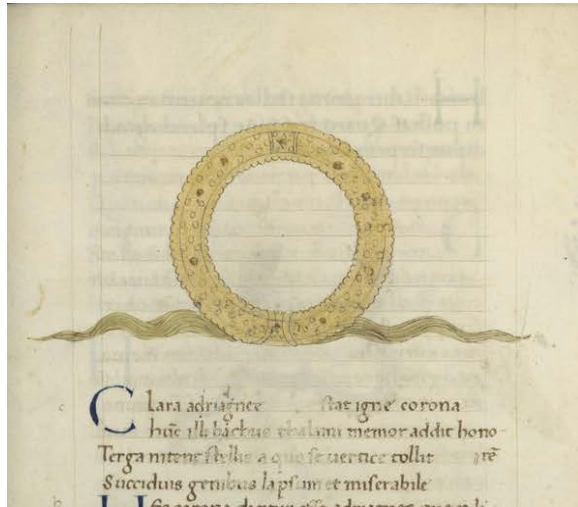 Clara adriagnee stat igne corona
hūc illi bachus thalami memor addit hono
Terga nitent stellis a quo se uertice tollit rē
Succiduis genibus lapsum et miserabile